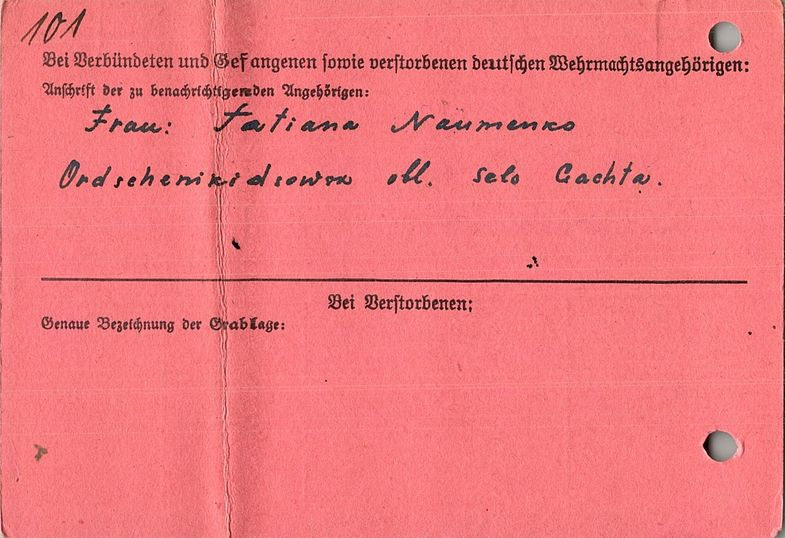 101
Bei Verbündeten und Gefangenen sowie verstorbenen deutschen Wehrmachtsangehörigen:
Anschrift der zu benachrichtigenden Angehörigen:
Frau: Tatiana Naumenko
Ordschenikidsowsk obl. selo Gachta.
Bei Verstorbenen:
Genaue Bezeichnung der Grablage: